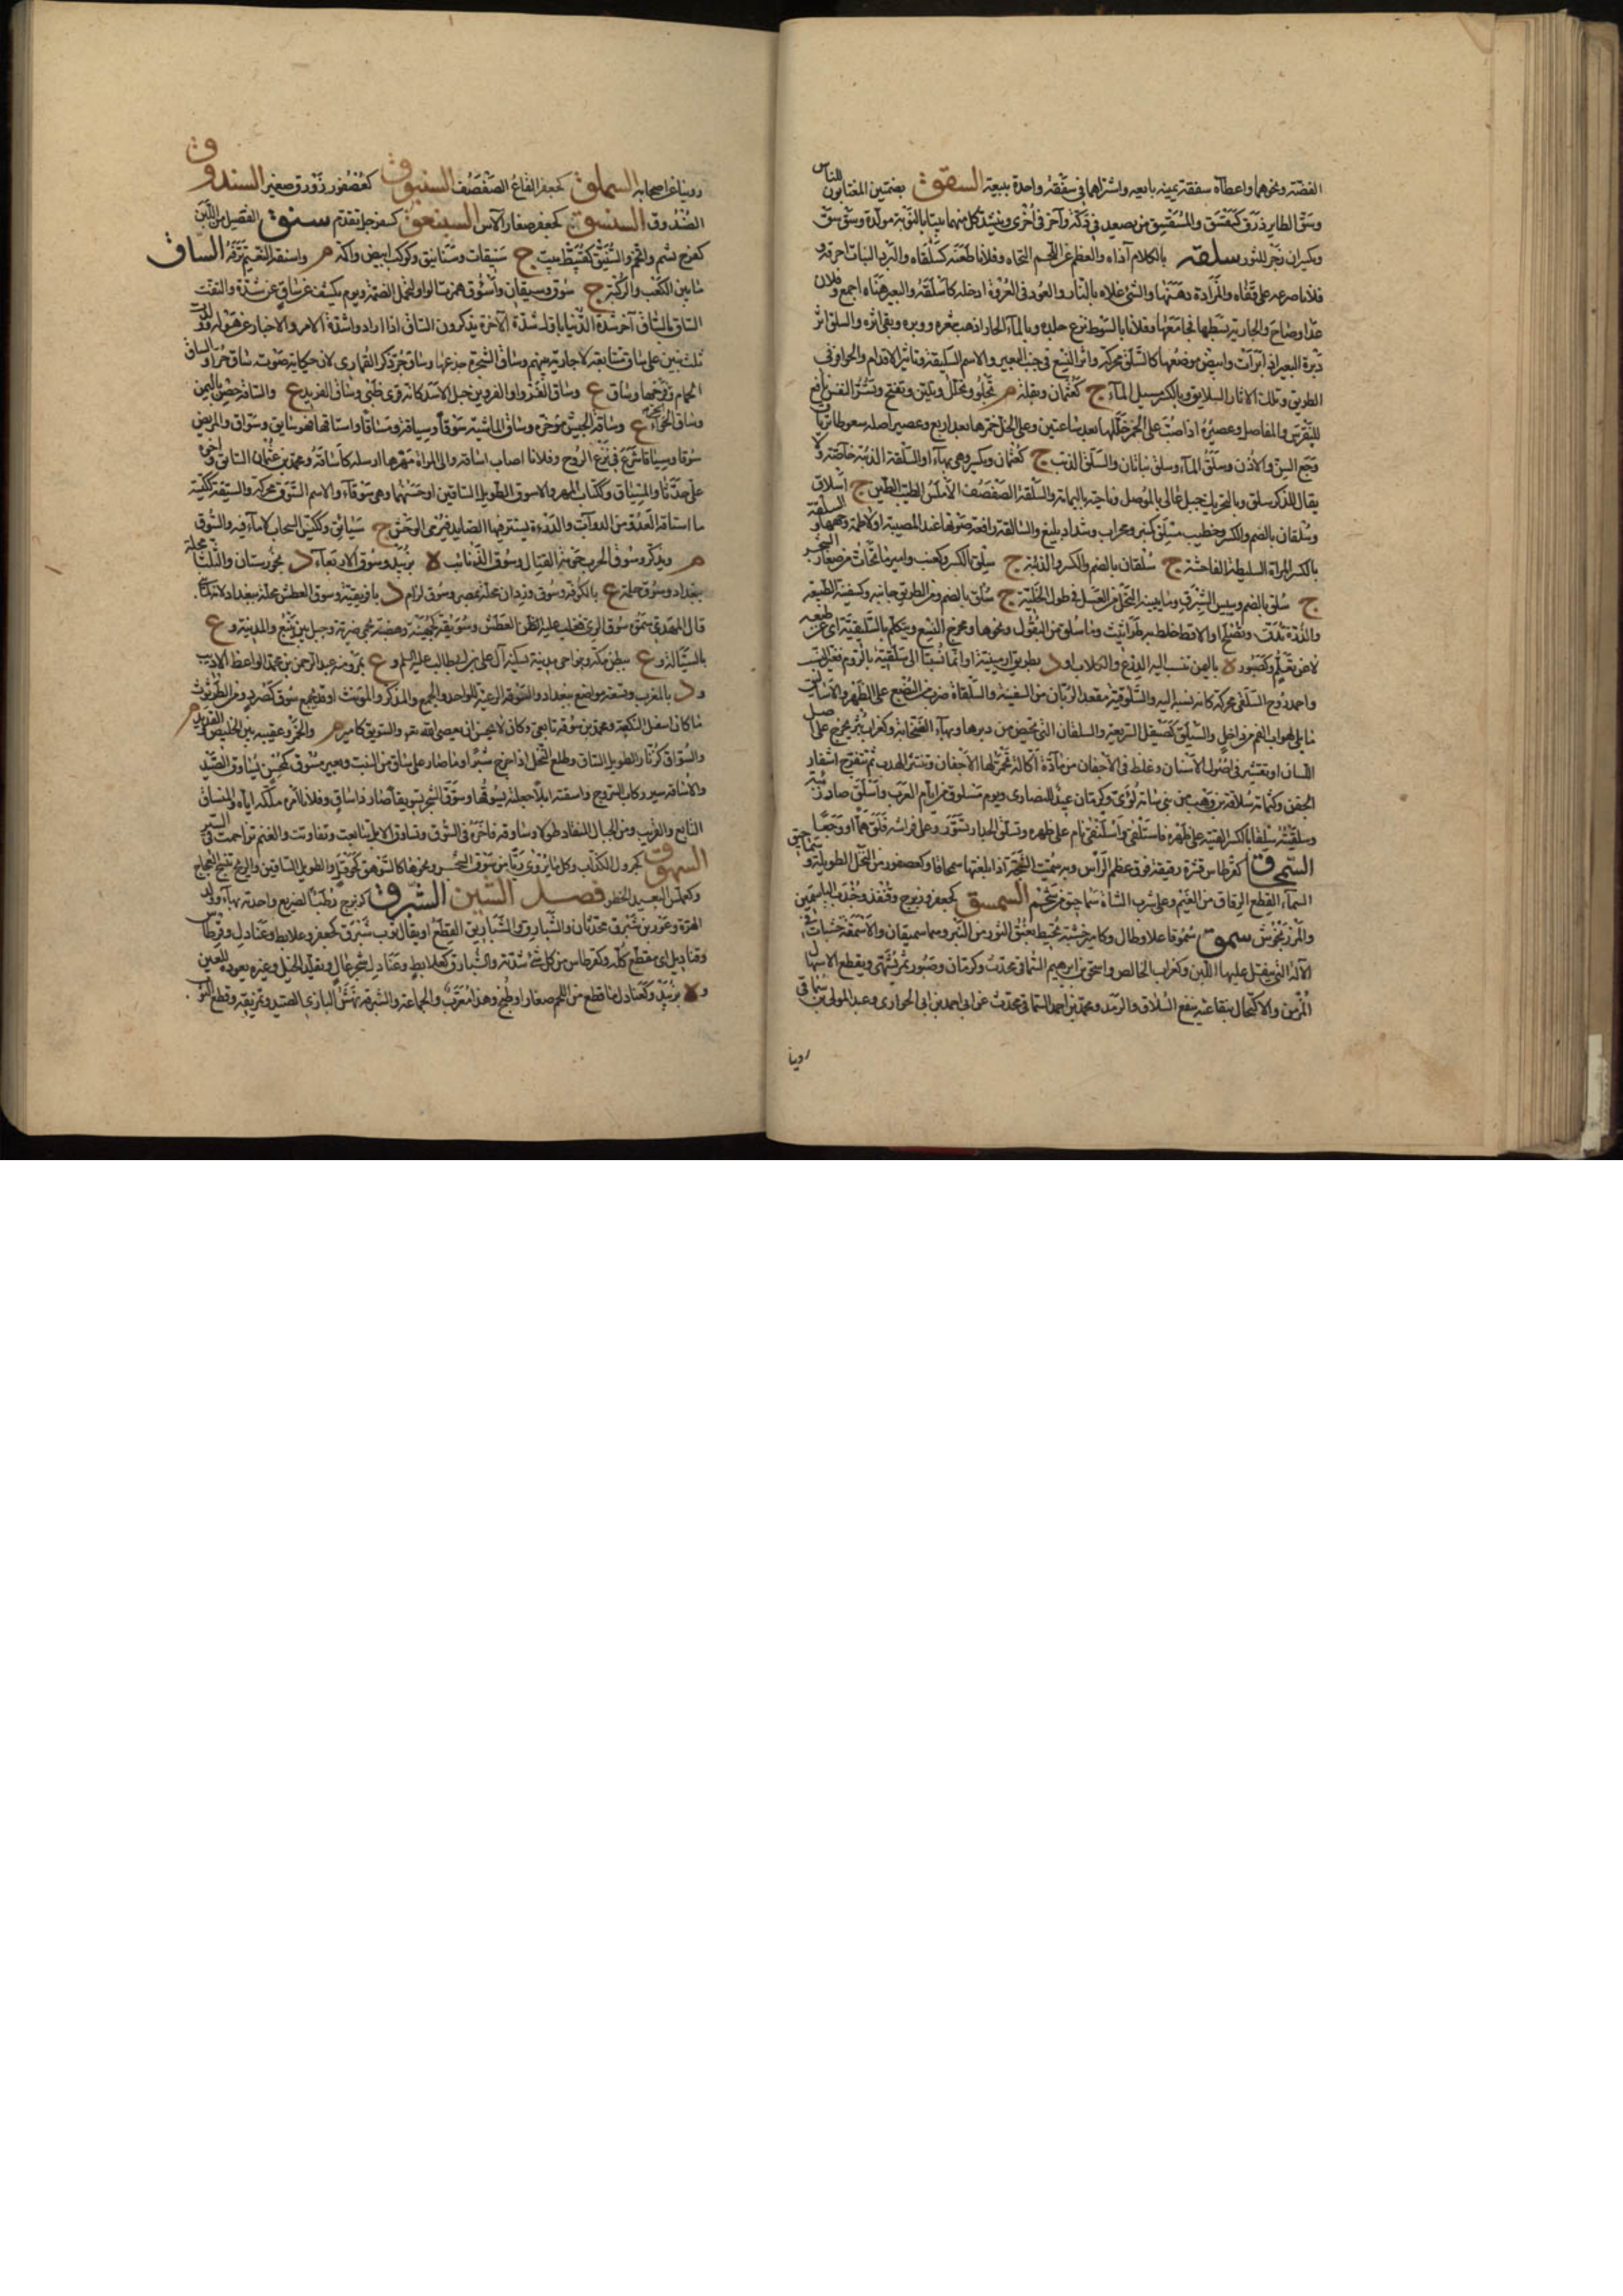 الفضة ونحوها واعطاه سفقة يمينه بايعه واشتراهما في سفقة واحدة ببيعة السقق بضمتين المغتابون للناس
وسق الطاير ذرق
وبكيران زجر للثور سلقه بالكلام آذاه والعظم عن اللحم التحاه وفلانا طعنه كسلقاه والبرد النبات احرقه و
فلانا صرعه على قفاه والمزادة دهنها والشئ غلاه بالنار والعود في العروة ادخله كاسلقه والبعير هناه اجمع وفلان
عدا وصاح والجارية بسطها فجامعها وفلانا بالسوط نزع جلده وبالماء الحار اذهب شعره ووبره وبقى اثره والسلق اثر
دبرة البعير اذا برأت وابيض موضعها كالسلق محركة واثر النسع في جنب البعير والاسم السليقة وتاثير الاقدام والحوافر في
الطريق وتلك الاثار السلايق وبالكسر مسيل الماء ج كعثمان وبقلة م تجلو وتحلل وتلين وتفتح وتسر النفس نافع
للنقرس والمفاصل وعصيره اذا صب على الخمر خللها بعد ساعتين وعلى الخل خمرها بعد اربع وعصير اصله سعوطا ترياق
وجع السن والاذن وسلق الماء وسلق نباتان والسلق الذئب ج كعثمان ويكسر وهي بهاء او السلقة الذئبة خاصة ولا
يقال للذكر سلق وبالتحريك جبل عال بالموصل وناحية باليمامة والسلقة الصفصف الاملس الطيب الطين ج اسلاق
وسلقان بالضم والكسر وخطيب مسلق كمنبر ومحراب وشداد بليغ والسالقة رافعة صوتها عند المصيبة او لاطمة وجهها والسلقة
بالكسر المراة السليطة الفاحشة ج سلقان بالضم والكسر والذئبة ج سلق بالكسر وكعنب وامير ما تحات من صغار الشجر
ج سلق بالضم ويبيس الشبرق وما يبنيه النحل من العسل في طول الخلية ج سلق بالضم ومن الطريق جانبه وكسفينة الطبيعة
والذرة تدق وتصلح او الاقط خلط به طراثيث وما سلق من البقول ونحوها ومخرج النسع ويتكلم بالسليقية اي عن طبعه
لا عن تعلم وكصبور ة باليمن تنسب اليه الدروع والكلاب او د بطرف ارمينية او انما نسبتا الى سلقية بالروم فغير النسب
واحمد بن روح السلقي محركة كانه نسبة اليه والسلوقية مقعد الربان من السفينة والسلقاة ضرب من البضع على الظهر والاسالق
ما يلي لهوات الفم من داخل والسيلق كصيقل السريعة والسلقان التي تحيض من دبرها وبهاء الصخابة وكغراب بثر يخرج على اصل
اللسان او تقشر في اصول الاسنان وغلظ في الاجفان من مادة اكالة تحمر لها الاجفان وتنتثر الهدب ثم تتقرح اشفار
الجفن وكثمامة سلاقة بن وهيب من بني سامة بن لؤي وكرمان عيد للنصارى ويوم مسلوق من ايام العرب واسلق صاد ذئبة
وسلقيته سلقاء بالكسر القيته على ظهره فاستلقى واسلنقى نام على ظهره وتسلق الجدار تسور وعلى فراشه قلق هما او وجعا
السمحاق كقرطاس قشرة رقيقة فوق عظم الراس وبه سميت الشجة اذا بلغتها سمحاقا وكعصفور من النخل الطويلة و
السماء القطع الرقاق من الغيم وعلى ثرب الشاة سماحيق من شحم السمسق كجعفر وزبرج وقنفذ وجندب الياسمين
والمرزنجوش سمق سموقا علا وطال وكامير خشبة تحيط بعنق الثور من النير وهما سميقان والاسمقة خشبات في
الآلة التي ينقل عليها اللبن وكغراب الخالص واسحق بن ابرهيم السماقي محدث وكرمان وصبور ثمر يشهي ويقطع الاسهال
المزمن والاكتحال بنقاعته ينفع السلاق والرمد ومحمد بن احمد السماقي محدث عن ابي احمد بن ابي الحواري وعبد المولى بن
روينا
روينا عن اصحابه السملق كجعفر القاع الصفصف السنبوق كعصفور زورق صغير السندوق
الصندوق السنسق كجعفر صغار الآس السنعبق كسفرجل تقدم سنق الفصيل من اللبن
كفرح بشم واتخم والسنيق كقبيط بيت ج سنيقات وسنانيق وكوكب ابيض واكمة م واسنقه النعيم ترفه الساق
ما بين الكعب والركبة ج سوق وسيقان واسؤق همزت الواو لتحمل الضمة ويوم يكشف عن ساق عن شدة والتفت
الساق بالساق آخر شدة الدنيا باول شدة الآخرة يذكرون الساق اذا ارادوا شدة الامر والاخبار عن هوله وولدت
ثلثة بنين على ساق متتابعة لا جارية بينهم وساق الشجرة جذعها وساق حر ذكر القماري لان حكاية صوته ساق حر او الساق
الحمام والحر فرخها وساق ع وساق الفرو او الفروين جبل لاسد كانه قرن ظبي وساق الفريد ع والساقة حصن باليمن
وساق الجواء ع وساقة الجيش مؤخره وساق الماشية سوقا وسياقة ومساقا واستاقها فهو سايق وسواق والمريض
سوقا وسياقا شرع في نزع الروح وفلانا اصاب ساقه والى المراة مهرها ارسله كاساقه ومحمد بن عثمان السائق واخوه
علي حدثا والسياق ككتاب المهر والاسوق الطويل الساقين او حسنهما وهي سوقاء والاسم السوق محركة والسيقة ككيسة
ما استاقه العدو من الدواب والدريئة يستتر فيها الصايد فيرمي الوحش ج سيائق وككيس السحاب لا ماء فيه والسوق
م ويذكر وسوق الحرب حومة القتال وسوق الذنائب ة بزبيد وسوق الاربعاء د بخوزستان والثلثاء محلة
ببغداد وسوق حكمة ع بالكوفة وسوق وردان محلة بمصر وسوق لزام د بافريقية وسوق العطش محلة ببغداد لانه لما بنى
قال المهدي سموه سوق الري فغلب عليه العطش وسويقة كجهينة هضبة بحمى ضرية وجبل بين ينبع والمدينة و ع
بالسيالة و ع ببطن مكة وبنواحي مدينة يسكنه آل علي بن ابي طالب عليهم السلام و ع بمرو منه عبد الرحمن بن محمد الواعظ الاديب
و د بالمغرب وتسعة مواضع ببغداد والسوقة الرعية للواحد والجمع والمذكر والمؤنث او قد يجمع سوق كصرد ومن الطرثوث
ما كان اسفل النكعة ومحمد بن سوقة تابعي وكان لا يحسن ان يعصى الله تعالى والسويق كامير م والخمر وعقبة بين الخليص والقديد م
والسواق كزنار الطويل الساق وطلع النخل اذا خرج شبرا وما صار على ساق من النبت وبعير مسوق كمحسن يساوق الصيد
والاساقة سير ركاب السروج واسقته ابلا جعلته يسوقها وسوق الشجر تسويقا صار ذا ساق وفلانا الامر ملكه اياه والمنساق
التابع والقريب ومن الجبال المنقاد طولا وساوقه فاخره في السوق وتساوقت الابل تتابعت وتقاودت والغنم تزاحمت في السير
السهوق كجرول الكذاب وكل ما يروى ريا من سوق الشجر ونحوها كالسوهق كحوقل والطويل الساقين والريح تنسج العجاج
وكعملس البعيد الخطو فصل الشين الشبرق كزبرج رطب الضريع واحدته بهاء وولد
الهرة وعزر بن شبرق محدثان والشبارق والشباريق القطع او يقال ثوب شبرق كجعفر وعلابط وعنادل وقرطاس
وقناديل اي مقطع كله وكقرطاس من كل شئ شدته والشبارق كعلابط وعنادل شجر عال ويقلد الخيل وغيره بعوده للعين
و ة بزبيد وكعنادل ما قطع من اللحم صغارا وطبخ وهذا معرب والجماعة والشبرقة نهش البازي الصيد وتمزيقه وقطع الثوب